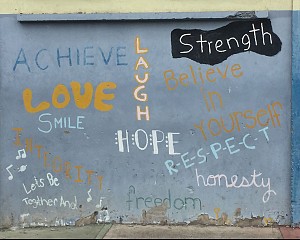 ACHIEVE
LAUGH
Strength
Believe
in
YOURSELF
LOVE
SMILE
HOPE
R-E-S-P-E-C-T
INTEGRITY
honesty
Let's Be
Together And
freedom